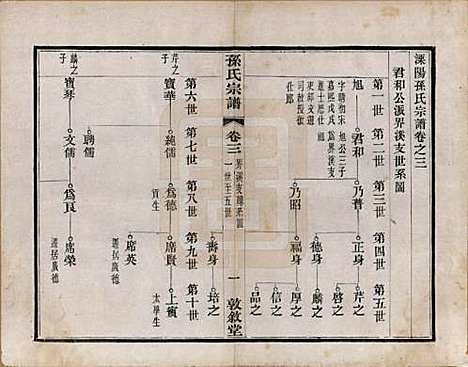 溧陽孫氏宗譜卷之三
君和公派界溪支世系圖
第一世 第二世 第三世 第四世 第五世
旭 君和 乃普 正身 芹之
啓之
德身 麟之
字明初宋旭公三子
嘉熙戊戌爲界溪支
進士歷仕
東部文選
司敎授
仕郎
乃昭 福身 厚之
信之
品之
壽身 培之
孫氏宗譜 卷三 界溪支世系圖 一世至五世 一 敦敘堂
第六世 第七世 第八世 第九世 第十世
芹之子 寶華 純儒 爲德 席賢 上賓
貢生
太學生
席英
遷居廣德
聘儒
麟之子 寶琴 文儒 爲良 席榮
遷居廣德